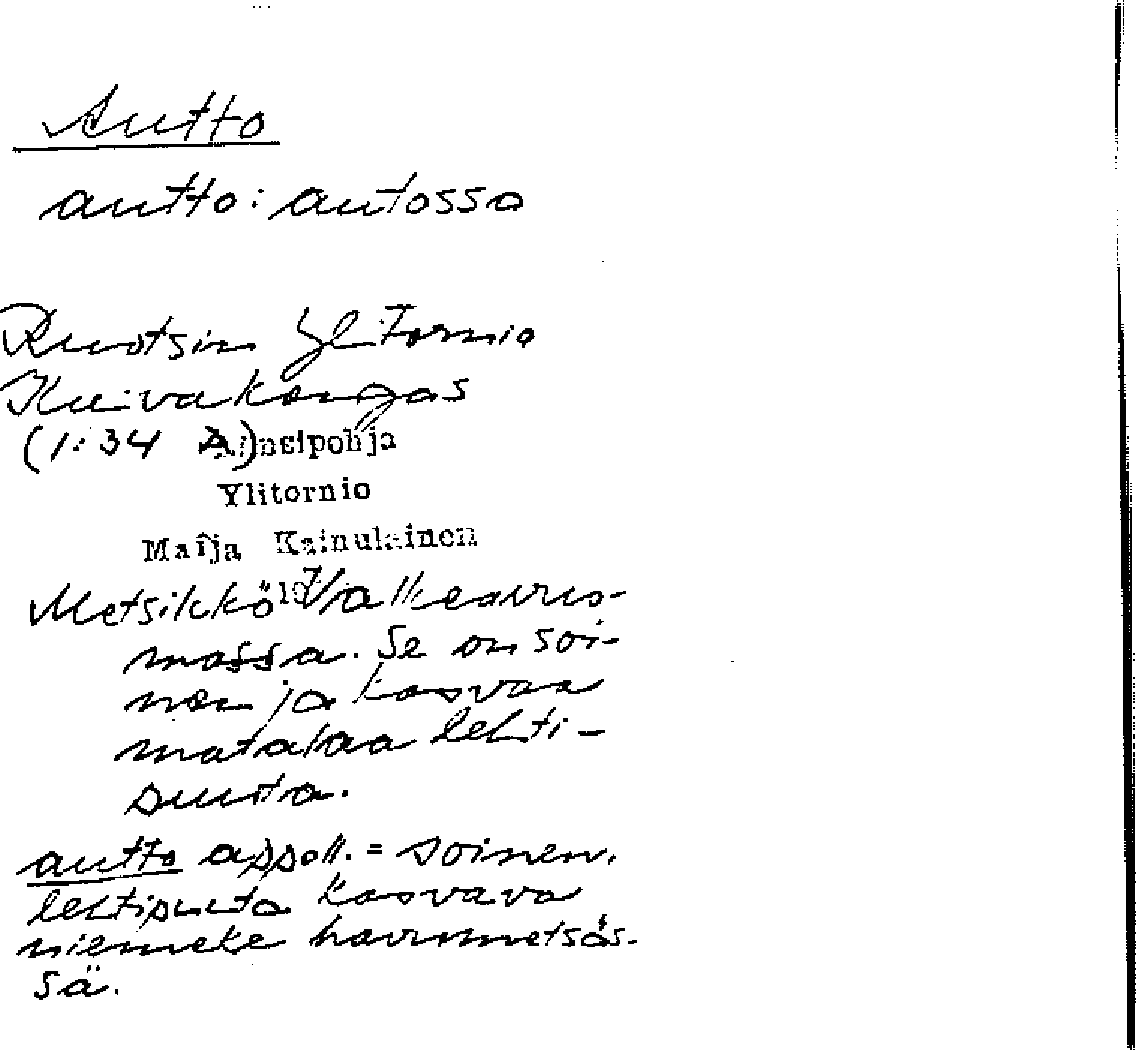 Autto
autto: autossa
Ruotsin Ylitornio
Kuivakangas
(1:34 A) Länsipohja
Ylitornio
Maija Kainulainen
Metsikkö Valkeavuo-
massa. Se on soi-
nen ja kasvaa
matalaa lehti-
puuta.
autto appell. = soinen,
lehtipuuta kasvava
niemeke havumetsäs-
sä.